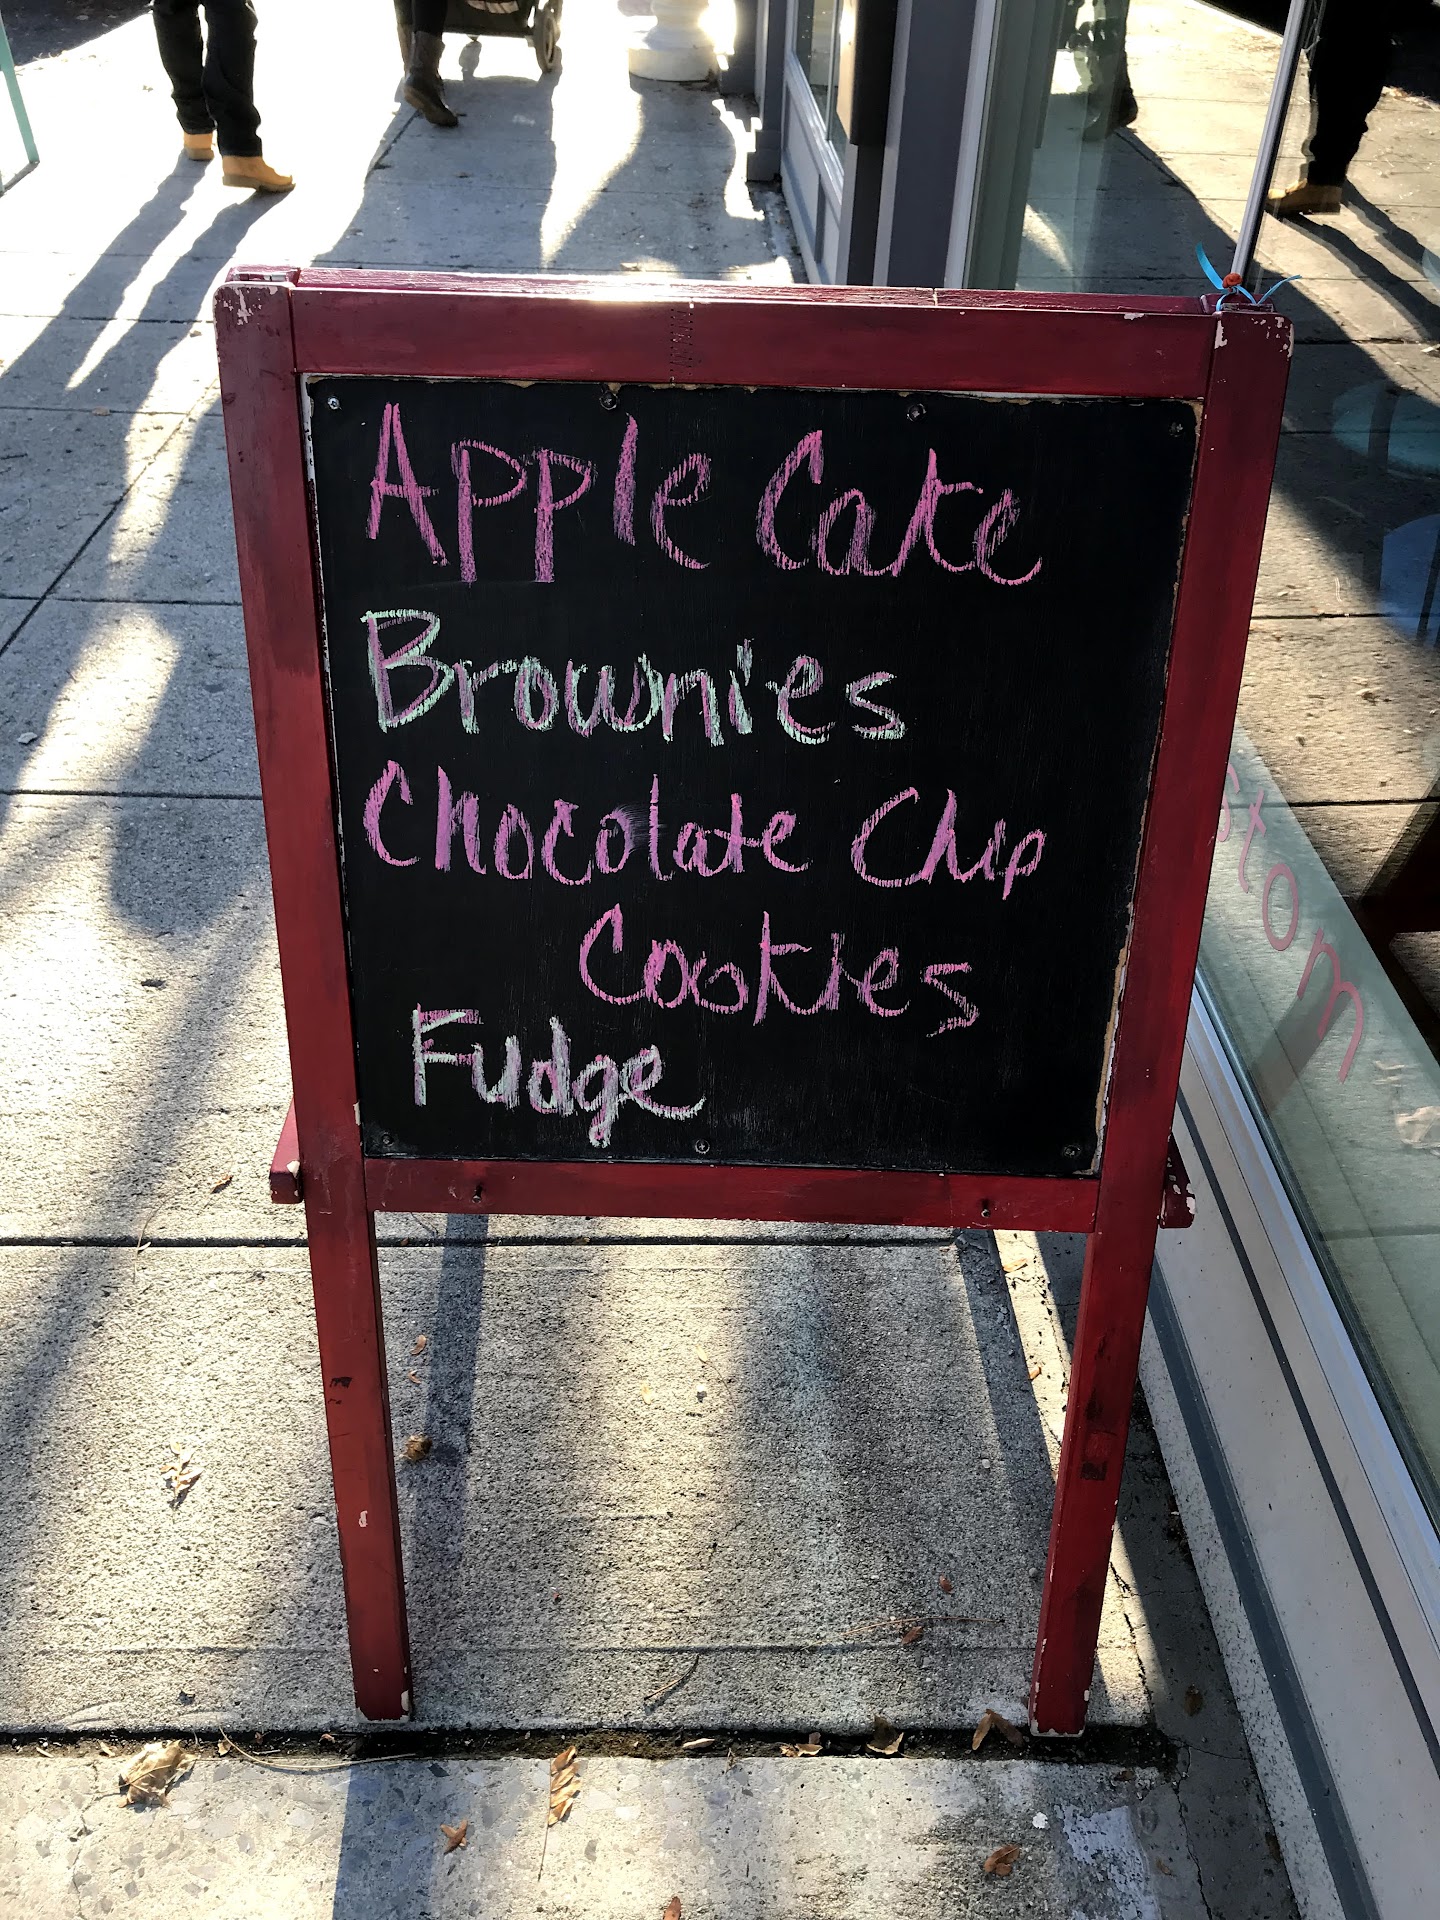 Apple Cake
Brownies
Chocolate Chip
Cookies
Fudge
stom